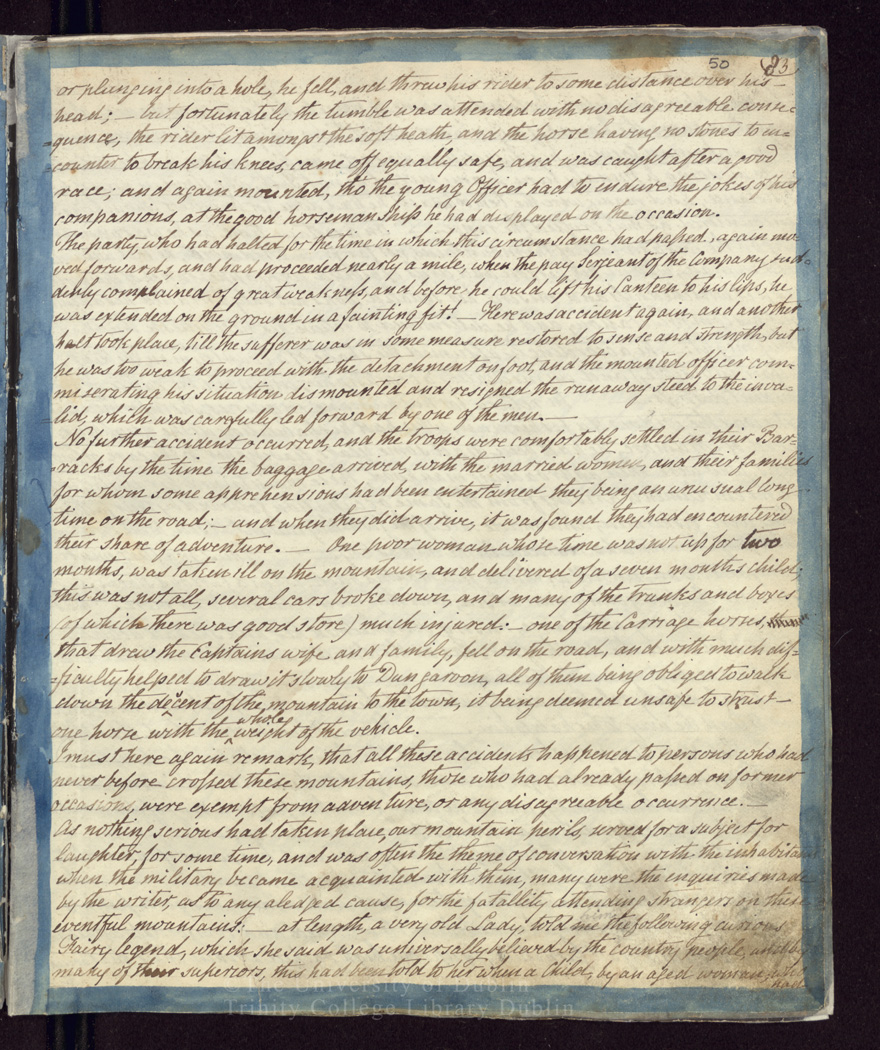 50 83
or plunging into a hole, he fell, and threw his rider to some distance over his
head; – but fortunately the tumble was attended with no disagreeable conse-
=quence, the rider lit amongst the soft heath, and the horse having no stones to en-
=counter to break his knees, came off equally safe, and was caught after a good
race; and again mounted, tho' the young Officer had to endure the jokes of his
companions, at the good horsemanship he had displayed on the occasion.
The party, who had halted for the time in which this circumstance had passed, again mo-
ved forwards, and had proceeded nearly a mile, when the pay Serjeant of the Company sud-
denly complained of great weakness, and before he could lift his Canteen to his lips, he
was extended on the ground in a fainting fit! – Here was accident again, and another
halt took place, till the sufferer was in some measure restored to sense and strength, but
he was too weak to proceed with the detachment on foot, and the mounted officer com-
miserating his situation dismounted and resigned the runaway steed to the inva-
=lid, which was carefully led forward by one of the men. –
No further accident occurred, and the troops were comfortably settled in their Bar-
=racks by the time the baggage arrived, with the married women, and their families
for whom some apprehensions had been entertained they being an unusual long
time on the road; – and when they did arrive, it was found they had encountered
their share of adventure. – One poor woman whose time was not up for two
months, was taken ill on the mountain, and delivered of a seven months child;
this was not all, several cars broke down, and many of the trunks and boxes
(of which there was good store) much injured: – one of the Carriage horses,
that drew the Captains wife and family, fell on the road, and with much dif-
=ficulty helped to draw it slowly to Dungarvon, all of them being obliged to walk
down the decent of the mountain to the town, it being deemed unsafe to trust
one horse with the whole weight of the vehicle.
I must here again remark, that all these accidents happened to persons who had
never before crossed these mountains, those who had already passed on former
occasions, were exempt from adventure, or any disagreeable occurrence. –
As nothing serious had taken place, our mountain perils, served for a subject for
laughter, for some time, and was often the theme of conversation with the inhabitants
when the military became acquainted with them, many were the enquiries made
by the writer, as to any aledged cause, for the fatallity attending strangers on these
eventful mountains: – at length, a very old Lady, told me the following curious
Fairy legend, which she said was universally believed by the country people, and by
many of their superiors, this had been told to her when a Child, by an aged woman who
had
The University of Dublin
Trinity College Library Dublin